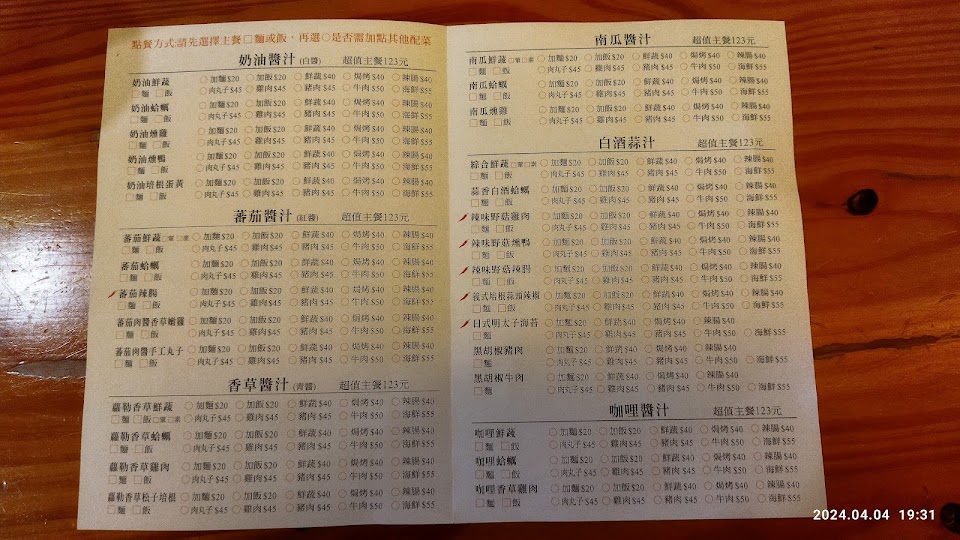 點餐方式:請先選擇主餐□麵或飯，再選○是否需加點其他配菜
奶油醬汁(白醬) 超值主餐123元
奶油鮮蔬 ○加麵$20 ○加飯$20 ○鮮蔬$40 ○焗烤$40 ○辣腸$40
□麵 □飯 ○肉丸子$45 ○雞肉$45 ○豬肉$45 ○牛肉$50 ○海鮮$55
奶油蛤蠣 ○加麵$20 ○加飯$20 ○鮮蔬$40 ○焗烤$40 ○辣腸$40
□麵 □飯 ○肉丸子$45 ○雞肉$45 ○豬肉$45 ○牛肉$50 ○海鮮$55
奶油燻雞 ○加麵$20 ○加飯$20 ○鮮蔬$40 ○焗烤$40 ○辣腸$40
□麵 □飯 ○肉丸子$45 ○雞肉$45 ○豬肉$45 ○牛肉$50 ○海鮮$55
奶油燻鴨 ○加麵$20 ○加飯$20 ○鮮蔬$40 ○焗烤$40 ○辣腸$40
□麵 □飯 ○肉丸子$45 ○雞肉$45 ○豬肉$45 ○牛肉$50 ○海鮮$55
奶油培根蛋黃 ○加麵$20 ○加飯$20 ○鮮蔬$40 ○焗烤$40 ○辣腸$40
□麵 □飯 ○肉丸子$45 ○雞肉$45 ○豬肉$45 ○牛肉$50 ○海鮮$55
蕃茄醬汁(紅醬) 超值主餐123元
蕃茄鮮蔬□葷□素 ○加麵$20 ○加飯$20 ○鮮蔬$40 ○焗烤$40 ○辣腸$40
□麵 □飯 ○肉丸子$45 ○雞肉$45 ○豬肉$45 ○牛肉$50 ○海鮮$55
蕃茄蛤蠣 ○加麵$20 ○加飯$20 ○鮮蔬$40 ○焗烤$40 ○辣腸$40
□麵 □飯 ○肉丸子$45 ○雞肉$45 ○豬肉$45 ○牛肉$50 ○海鮮$55
蕃茄辣腸 ○加麵$20 ○加飯$20 ○鮮蔬$40 ○焗烤$40 ○辣腸$40
□麵 □飯 ○肉丸子$45 ○雞肉$45 ○豬肉$45 ○牛肉$50 ○海鮮$55
蕃茄肉醬香草嫩雞 ○加麵$20 ○加飯$20 ○鮮蔬$40 ○焗烤$40 ○辣腸$40
□麵 □飯 ○肉丸子$45 ○雞肉$45 ○豬肉$45 ○牛肉$50 ○海鮮$55
蕃茄肉醬手工丸子 ○加麵$20 ○加飯$20 ○鮮蔬$40 ○焗烤$40 ○辣腸$40
□麵 □飯 ○肉丸子$45 ○雞肉$45 ○豬肉$45 ○牛肉$50 ○海鮮$55
香草醬汁(青醬) 超值主餐123元
蘿勒香草鮮蔬 ○加麵$20 ○加飯$20 ○鮮蔬$40 ○焗烤$40 ○辣腸$40
□麵 □飯□葷□素 ○肉丸子$45 ○雞肉$45 ○豬肉$45 ○牛肉$50 ○海鮮$55
蘿勒香草蛤蠣 ○加麵$20 ○加飯$20 ○鮮蔬$40 ○焗烤$40 ○辣腸$40
□麵 □飯 ○肉丸子$45 ○雞肉$45 ○豬肉$45 ○牛肉$50 ○海鮮$55
蘿勒香草雞肉 ○加麵$20 ○加飯$20 ○鮮蔬$40 ○焗烤$40 ○辣腸$40
□麵 □飯 ○肉丸子$45 ○雞肉$45 ○豬肉$45 ○牛肉$50 ○海鮮$55
蘿勒香草松子培根 ○加麵$20 ○加飯$20 ○鮮蔬$40 ○焗烤$40 ○辣腸$40
□麵 □飯 ○肉丸子$45 ○雞肉$45 ○豬肉$45 ○牛肉$50 ○海鮮$55
南瓜醬汁 超值主餐123元
南瓜鮮蔬□葷□素 ○加麵$20 ○加飯$20 ○鮮蔬$40 ○焗烤$40 ○辣腸$40
□麵 □飯 ○肉丸子$45 ○雞肉$45 ○豬肉$45 ○牛肉$50 ○海鮮$55
南瓜蛤蠣 ○加麵$20 ○加飯$20 ○鮮蔬$40 ○焗烤$40 ○辣腸$40
□麵 □飯 ○肉丸子$45 ○雞肉$45 ○豬肉$45 ○牛肉$50 ○海鮮$55
南瓜燻雞 ○加麵$20 ○加飯$20 ○鮮蔬$40 ○焗烤$40 ○辣腸$40
□麵 □飯 ○肉丸子$45 ○雞肉$45 ○豬肉$45 ○牛肉$50 ○海鮮$55
白酒蒜汁 超值主餐123元
綜合鮮蔬□葷□素 ○加麵$20 ○加飯$20 ○鮮蔬$40 ○焗烤$40 ○辣腸$40
□麵 □飯 ○肉丸子$45 ○雞肉$45 ○豬肉$45 ○牛肉$50 ○海鮮$55
蒜香白酒蛤蠣 ○加麵$20 ○加飯$20 ○鮮蔬$40 ○焗烤$40 ○辣腸$40
□麵 □飯 ○肉丸子$45 ○雞肉$45 ○豬肉$45 ○牛肉$50 ○海鮮$55
辣味野菇雞肉 ○加麵$20 ○加飯$20 ○鮮蔬$40 ○焗烤$40 ○辣腸$40
□麵 □飯 ○肉丸子$45 ○雞肉$45 ○豬肉$45 ○牛肉$50 ○海鮮$55
辣味野菇燻鴨 ○加麵$20 ○加飯$20 ○鮮蔬$40 ○焗烤$40 ○辣腸$40
□麵 □飯 ○肉丸子$45 ○雞肉$45 ○豬肉$45 ○牛肉$50 ○海鮮$55
辣味野菇辣腸 ○加麵$20 ○加飯$20 ○鮮蔬$40 ○焗烤$40 ○辣腸$40
□麵 □飯 ○肉丸子$45 ○雞肉$45 ○豬肉$45 ○牛肉$50 ○海鮮$55
義式培根蒜頭辣椒 ○加麵$20 ○加飯$20 ○鮮蔬$40 ○焗烤$40 ○辣腸$40
□麵 □飯 ○肉丸子$45 ○雞肉$45 ○豬肉$45 ○牛肉$50 ○海鮮$55
日式明太子海苔 ○加麵$20 ○加飯$20 ○鮮蔬$40 ○焗烤$40 ○辣腸$40
□麵 □飯 ○肉丸子$45 ○雞肉$45 ○豬肉$45 ○牛肉$50 ○海鮮$55
黑胡椒豬肉 ○加麵$20 ○加飯$20 ○鮮蔬$40 ○焗烤$40 ○辣腸$40
□麵 □飯 ○肉丸子$45 ○雞肉$45 ○豬肉$45 ○牛肉$50 ○海鮮$55
黑胡椒牛肉 ○加麵$20 ○加飯$20 ○鮮蔬$40 ○焗烤$40 ○辣腸$40
□麵 ○肉丸子$45 ○雞肉$45 ○豬肉$45 ○牛肉$50 ○海鮮$55
咖哩醬汁 超值主餐123元
咖哩鮮蔬 ○加麵$20 ○加飯$20 ○鮮蔬$40 ○焗烤$40 ○辣腸$40
□麵 □飯 ○肉丸子$45 ○雞肉$45 ○豬肉$45 ○牛肉$50 ○海鮮$55
咖哩蛤蠣 ○加麵$20 ○加飯$20 ○鮮蔬$40 ○焗烤$40 ○辣腸$40
□麵 □飯 ○肉丸子$45 ○雞肉$45 ○豬肉$45 ○牛肉$50 ○海鮮$55
咖哩香草雞肉 ○加麵$20 ○加飯$20 ○鮮蔬$40 ○焗烤$40 ○辣腸$40
□麵 □飯 ○肉丸子$45 ○雞肉$45 ○豬肉$45 ○牛肉$50 ○海鮮$55
2024.04.04 19:31